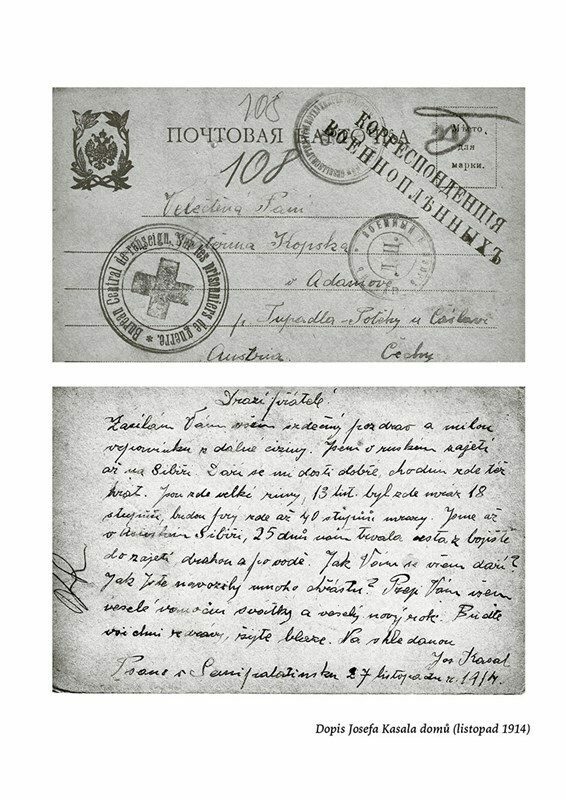 108
ПОЧТОВАЯ КАРТОЧКА
108
КОРРЕСПОНДЕНЦІЯ
ВОЕННОПЛѢННЫХЪ
Мѣсто
для
марки.
Veleděná Paní
Kopska
v Adamově
p. Tupadla-Potěhy u Čáslavi
Austria. Čechy
Bureau Central de renseign. sur les prisonniers de guerre.
Drazí přátelé
Zasílám Vám všem srdečný pozdrav a milou
vzpomínku z dalné ciziny. Jsem v ruském zajetí
až na Sibiři. Daří se mi dosti dobře, chodím zde též
hrát. Jsou zde velké zimy, 13 list. byl zde mráz 18
stupňů, budou prý zde až 40 stupňů mrazy. Jsme až
v Sibiři, 25 dnů nám trvala cesta z bojiště
do zajetí drahou a po vodě. Jak Vám se všem daří?
Jak jste navozily mnoho chrástu? Přeji Vám všem
veselé vánoční svátky a veselý nový rok. Buďte
všichni zdrávy, žijte blaze. Na shledanou
Jos Kasal
Psáno v Semipalatinsku 27 listopadu r. 1914.
Dopis Josefa Kasala domů (listopad 1914)